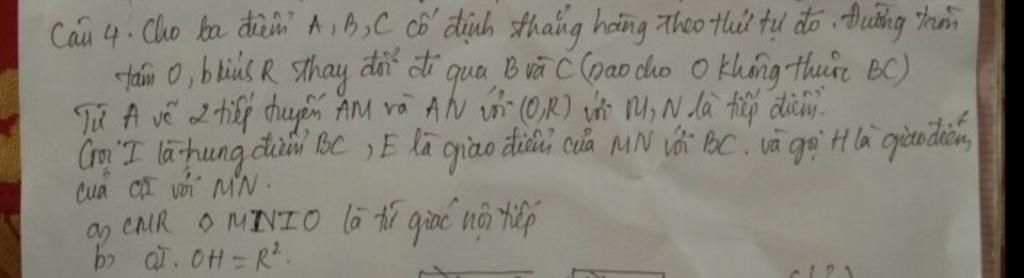 Câu 4. Cho ba điểm A, B, C cố định thẳng hàng theo thứ tự đó. Đường tròn
tâm O, bkính R thay đổi đi qua B và C (sao cho O không thuộc BC)
Từ A vẽ 2 tiếp tuyến AM và AN với (O,R) với M,N là tiếp điểm.
Gọi I là trung điểm BC, E là giao điểm của MN với BC. và gọi H là giao điểm
của OI với MN.
a, CMR ◊ MNIO là tứ giác nội tiếp
b, OI. OH = R².